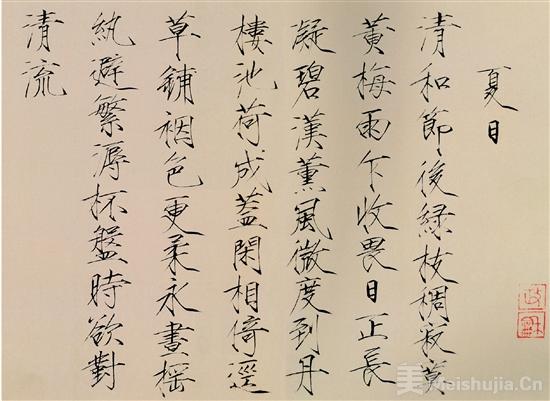 夏日
清和節後緑枝稠寂莫
黃梅雨乍收畏日正長
凝碧漢薰風微度到丹
樓池荷成蓋閑相倚逕
草鋪裀色更柔永晝搖
紈避繁溽杯盤時欲對
清流
政和
美 Meishujia.Cn